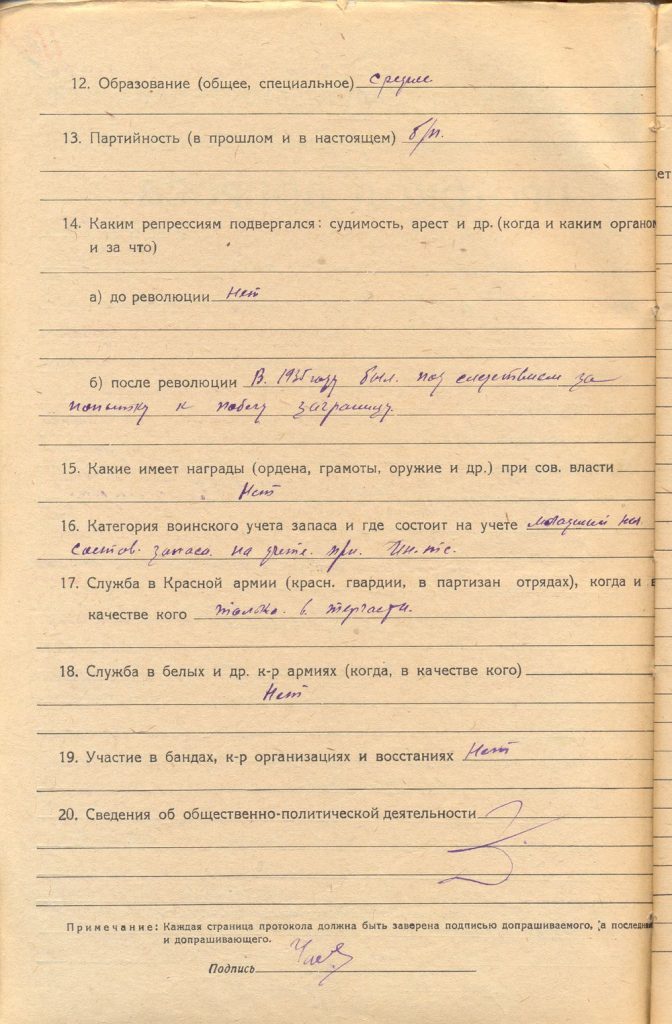 12. Образование (общее, специальное) средне
13. Партийность (в прошлом и в настоящем) б/п.
14. Каким репрессиям подвергался: судимость, арест и др. (когда и каким органом
и за что)
а) до революции Нет
б) после революции В 1935 году был. под следствием за
попытку к побегу заграницу.
15. Какие имеет награды (ордена, грамоты, оружие и др.) при сов. власти
Нет
16. Категория воинского учета запаса и где состоит на учете младший
состов. запаса. на учете. при.
17. Служба в Красной армии (красн. гвардии, в партизан отрядах), когда и в
качестве кого только. в. терчасти.
18. Служба в белых и др. к-р армиях (когда, в качестве кого)
Нет
19. Участие в бандах, к-р организациях и восстаниях Нет
20. Сведения об общественно-политической деятельности
Примечание: Каждая страница протокола должна быть заверена подписью допрашиваемого, а последняя
и допрашивающего.
Подпись